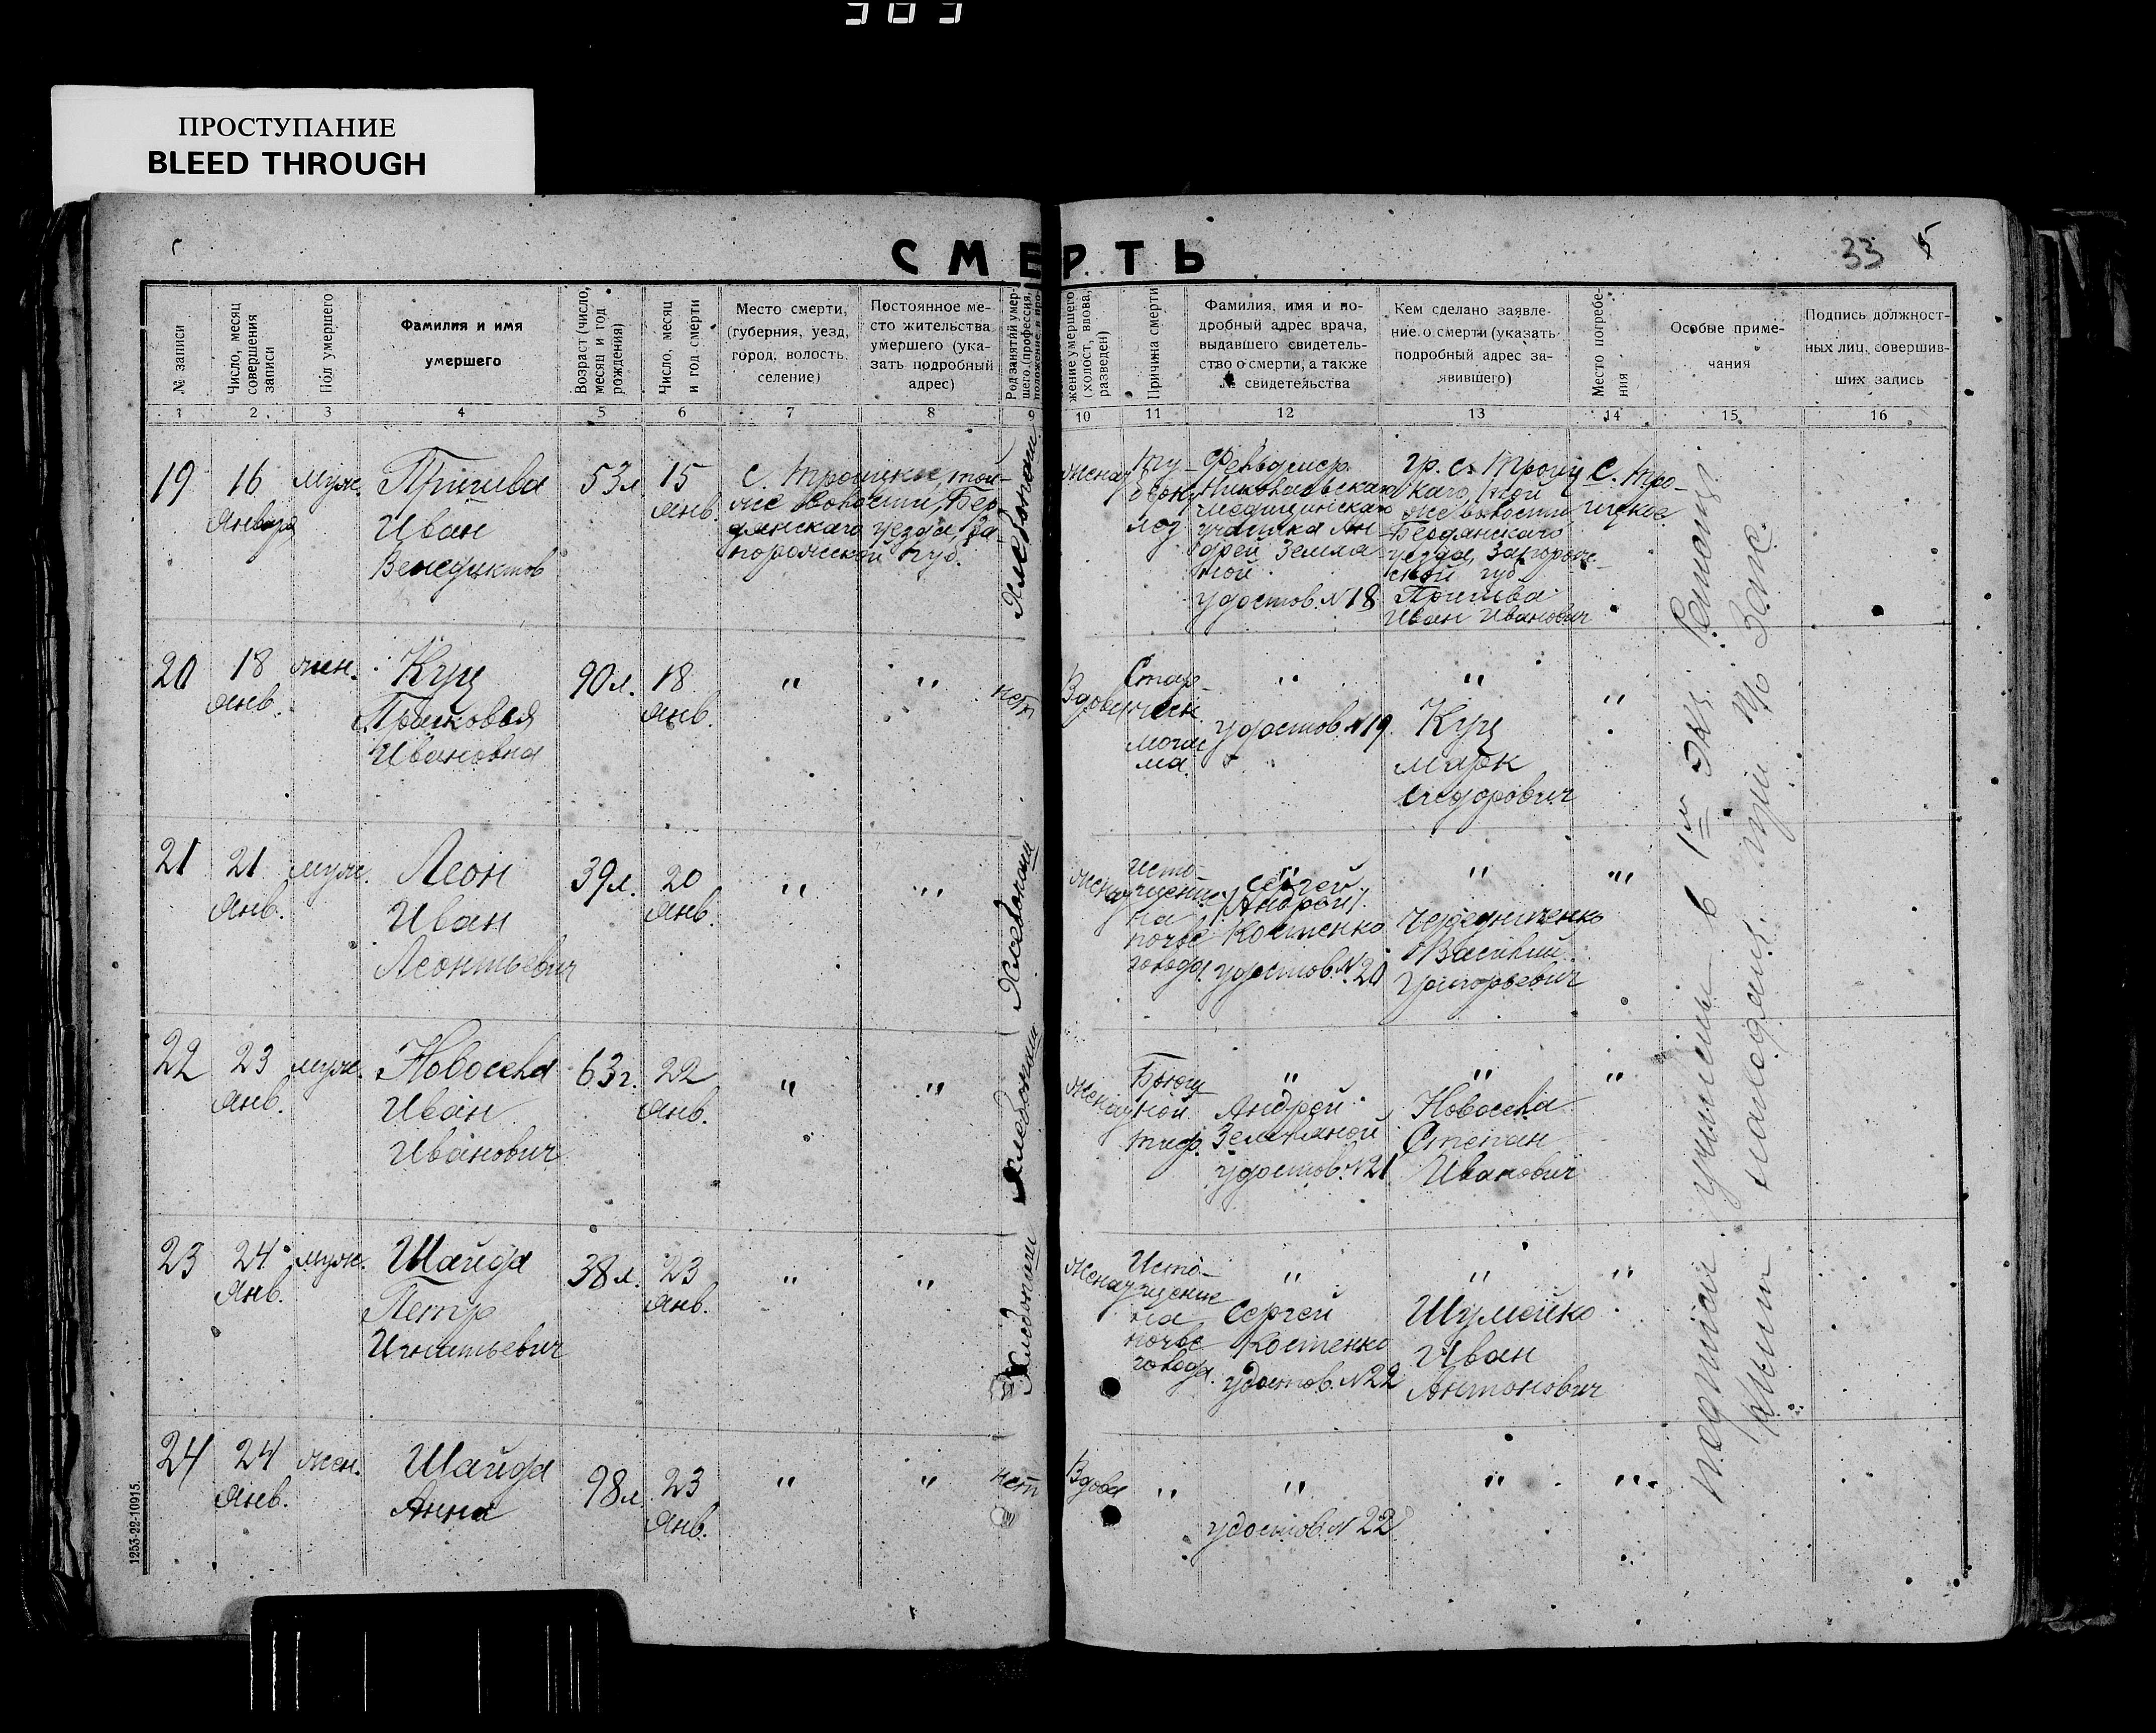 ПРОСТУПАНИЕ
BLEED THROUGH
СМЕРТЬ
33 5
№ записи
Число, месяц совершения записи
Пол умершего
Фамилия и имя
умершего
Возраст (число, месяц и год рождения)
Число, месяц и год смерти
Место смерти,
(губерния, уезд,
город, волость,
селение)
Постоянное ме-
сто жительства
умершего (ука-
зать подробный
адрес)
Род занятий умер-
шего (профессия,
положение в про-
жение умершего
(холост, вдова,
разведен)
Причина смерти
Фамилия, имя и по-
дробный адрес врача,
выдавшего свидетель-
ство о смерти, а также
№ свидетельства
Кем сделано заявле-
ние о смерти (указать
подробный адрес за-
явившего)
Место погребе-
ния
Особые приме-
чания
Подпись должност-
ных лиц, совершив-
ших запись
1 2 3 4 5 6 7 8 9 10 11 12 13 14 15 16
19
16
Января
муж.
Иван
Венедиктов
53 л
15
янв.
с. Троицкое, той-
же волости, Бер-
дянского уезда, За-
порожской губ.
Хлебопаш
женат
Фельдшер
Николаевскаго
медицинскаго
участка Ан-
дрей Земля
ной
удостов. №18
гр. с. Троиц
каго, той
же волости
Бердянского
уезда, Запорож-
ской губ.
Иван Иванович
С. Тро-
ицкое
20
18
янв.
жен.
Куц
Прасковья
Ивановна
90 л.
18
янв.
"
"
нет
Вдова
Старческ
"
удостов. №19
"
Куц
Марк
Сидорович
"
21
21
Янв.
муж.
Леон
Иван
Леонтьевич
39 л.
20
янв.
"
"
Хлебопаш
женат
Исто-
щение
на
почве
голода.
"
Сергей
/Андрей/
Костенко
удостов. №20
"
Чередниченко
Василий
Григорьевич
"
22
23
Янв.
муж.
Новосела
Иван
Иванович
63 г.
22
янв.
"
"
Хлебопаш
женат
Брюш
ной
тиф.
"
Андрей
Земляной
удостов. №21
"
Новосела
Степан
Иванович
"
23
24
Янв.
муж.
Шайда
Петр
Игнатьевич
38 л.
23
Янв.
"
"
Хлебопаш
женат
Исто-
щение
на
почве
голода.
"
Сергей
Костенко
удостов. №22
"
Шумейко
Иван
Антонович
"
24
24
Янв.
жен.
Шайда
Анна
98 л
23
Янв.
"
"
нет
Вдова
"
"
удостов. №22
"
"
1253-22-10915.